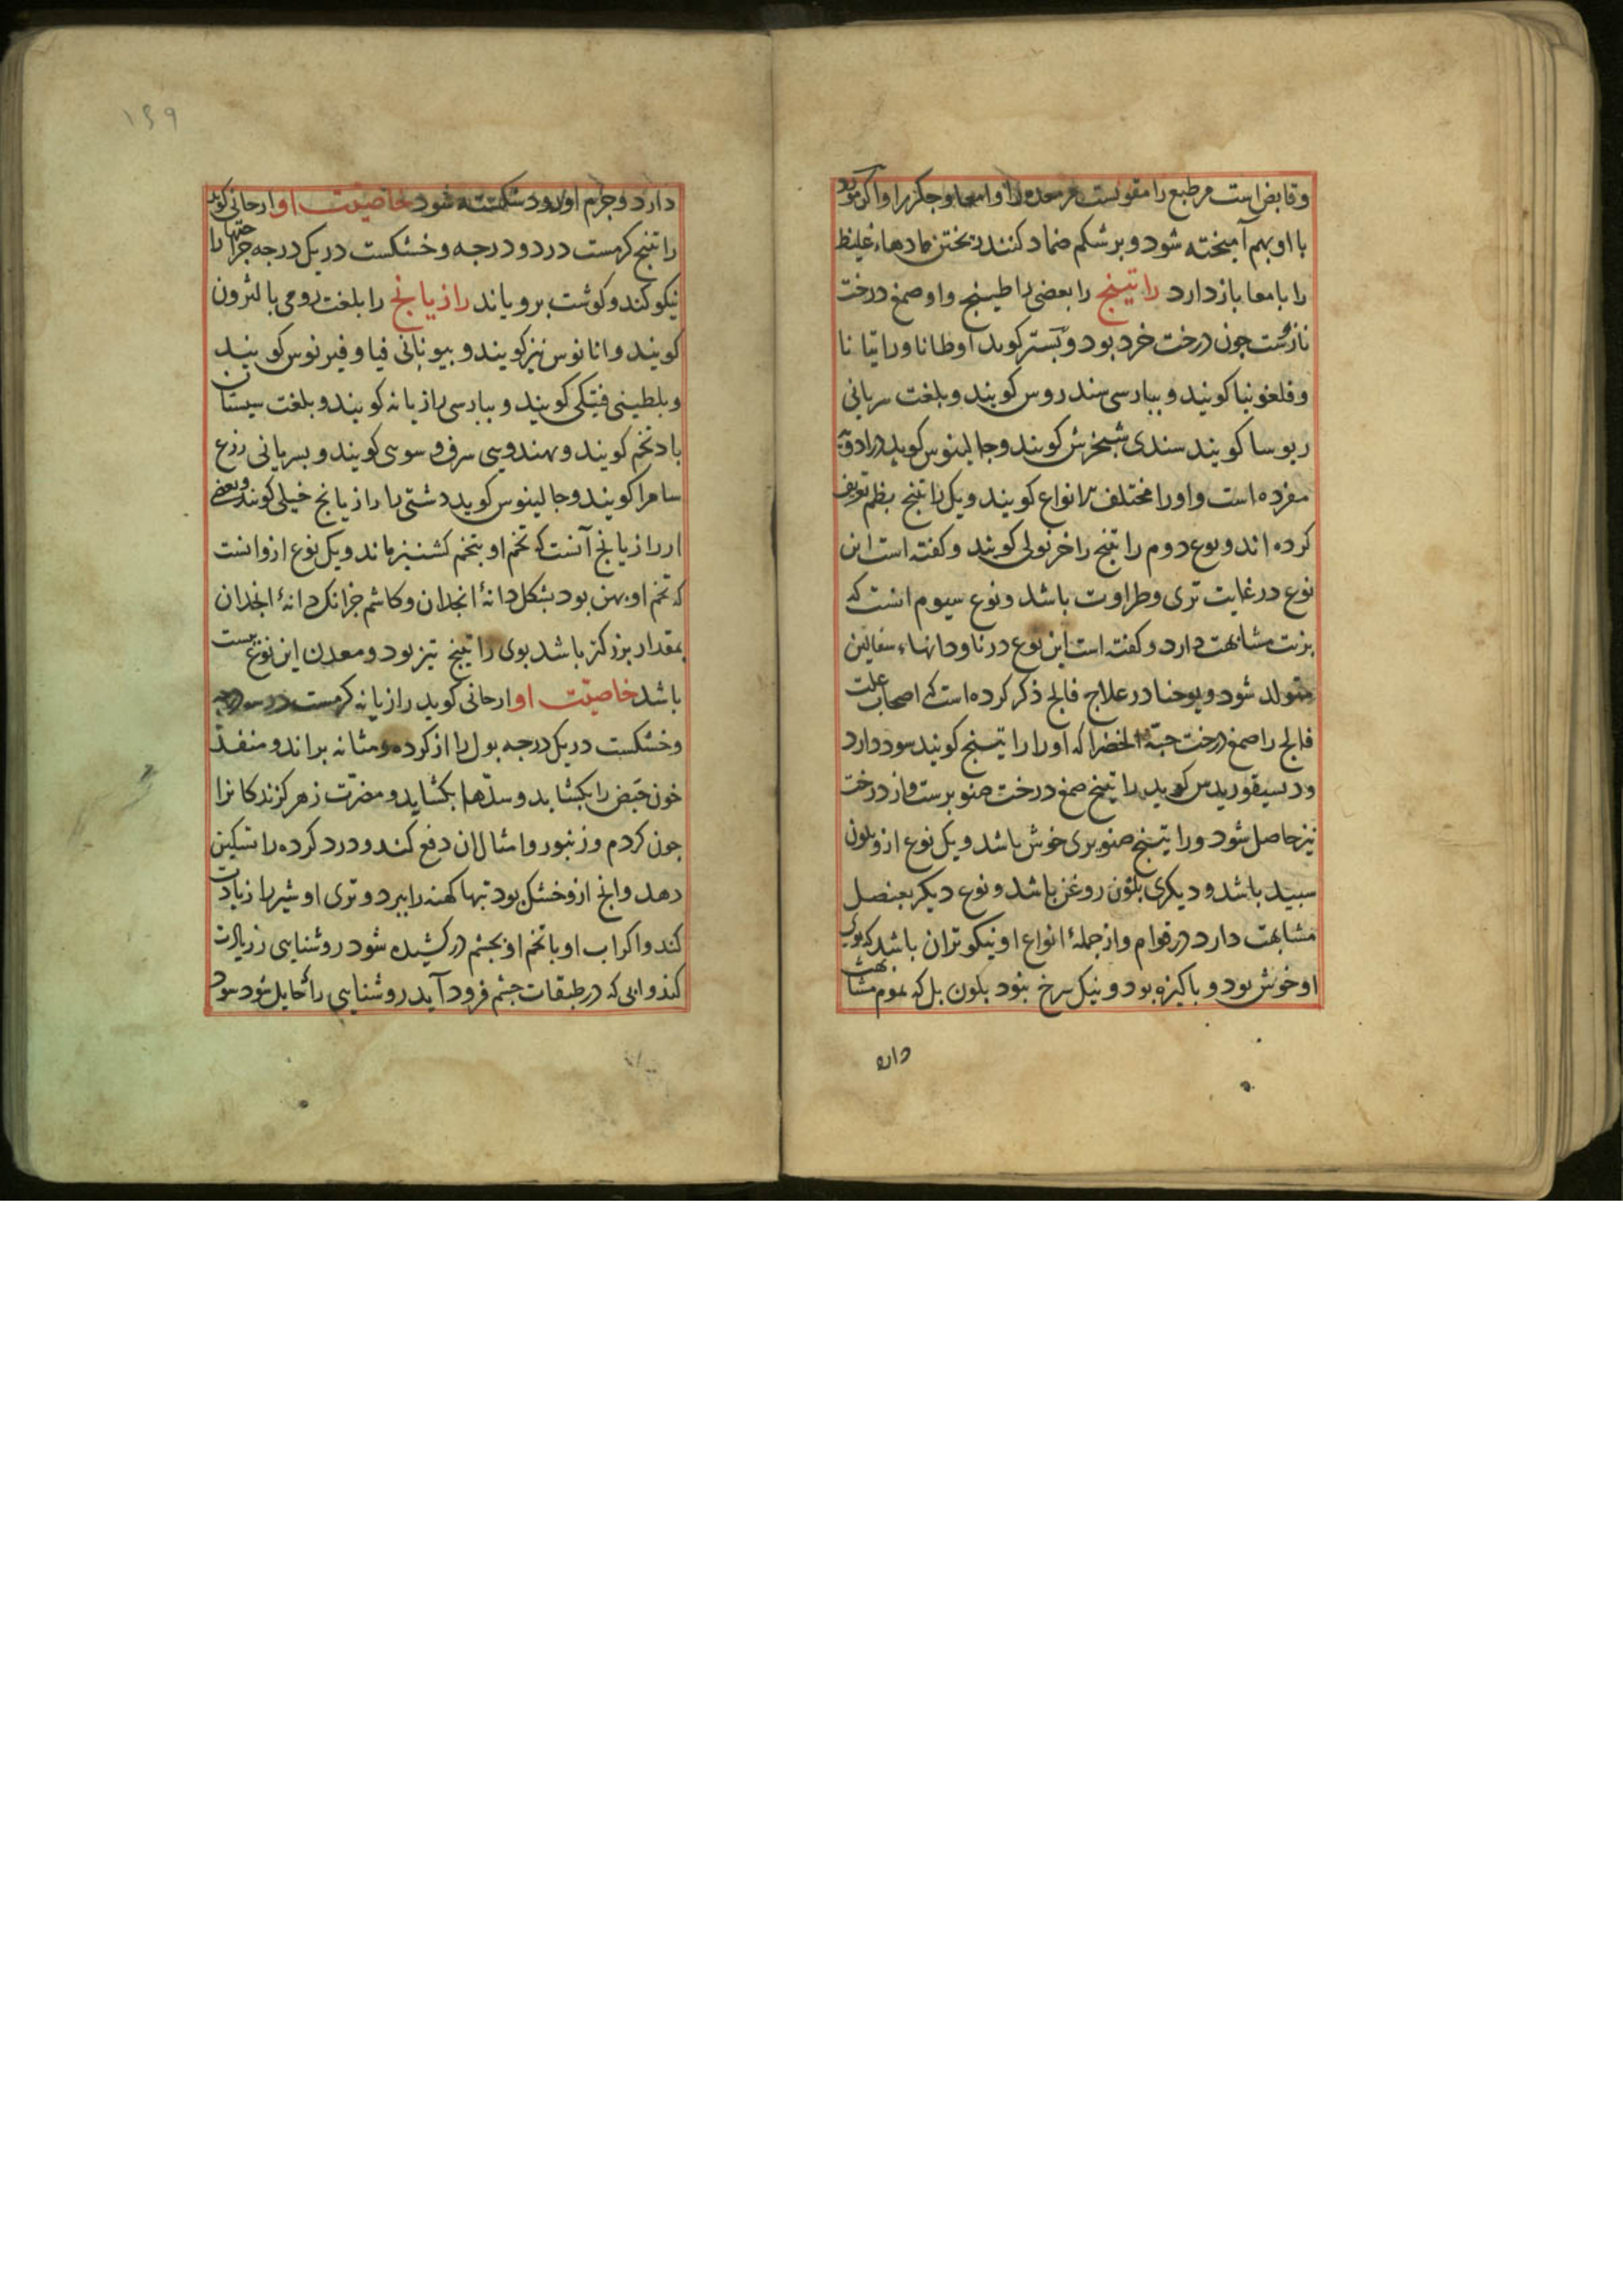 وقابض است مر طبع را مقویست مر معده را و امعا و جکر را و اکر مورد
با او بهم آمیخته شود و بر شکم ضماد کنند ریختن مادهاء غلیظ
را بامعا باز دارد راتینج را بعضی راطینج و او صمغ درخت
ناژست جون درخت خرد بود و بستر کوید اوطانا و راتیانا
و فلغونیا کویند و بپارسی سندروس کویند و بلغت سریانی
ریوسا کویند سندی شبخرش کویند و جالینوس کوید در ادویه
مفرده است و اورا مختلف تر انواع کویند و یک راتنج بظم تعریف
کرده اند و نوع دوم راتنج را خر نولی کویند و کفته است این
نوع در غایت تری و طراوت باشد و نوع سیوم انست که
بزنت مشابهت دارد و کفته است این نوع در ناودانهاء سفالین
متولد شود و یوحنا در علاج فالج ذکر کرده است که اصحاب علت
فالج را صمغ درخت حبة الخضرا که اورا راتینج کویند سود دارد
ودیسیقوریدس کوید راتینج صمغ درخت صنوبرست و از درخت
نیز حاصل شود و راتینج صنوبری خوش باشد و یک نوع ازو بلون
سبید باشد و دیکری بلون روغن باشد و نوع دیکر بعنصل
مشابهت دارد در قوام و از جملهٔ انواع او نیکوتر ان باشد که بوی
او خوش بود و باکیزه بود و نیک سرخ نبود بلون بل که بموم مشابهت
دارد
۱۴۹
دارد و جرم او زود شکسته شود خاصیت او ارجانی کوید
راتنج کرمست در دو درجه و خشکست در یک درجه جراحتها را
نیکو کند و کوشت برویاند رازیانج را بلغت رومی بالثرون
کویند و انانوس نیز کویند و بیونانی فیاوفیرنوس کویند
و بلطینی فینکی کویند و ببارسی رازیانه کویند و بلغت سیستان
بادتخم کویند و بهندویی سرف و سوسی کویند و بسریانی رزع
سامرا کویند و جالینوس کوید دشتی را رازیانج خیلی کویند و بعضی
از رازیانج آنست که تخم او بتخم کشنیز ماند و یک نوع ازو انست
که تخم او بهن بود بشکل دانهٔ انجدان و کاشم جز انک دانهٔ انجدان
بمقدار بزرکتر باشد بوی راتینج تیز بود و معدن این نوع بست
باشد خاصیت او ارجانی کوید رازیانه کرمست در سه درجه
و خشکست در یک درجه بول را از کرده و مثانه براند و منفذ
خون حیض را بکشاید و سدها بکشاید و مضرت زهر کزندکانرا
جون کژدم و زنبور و امثال ان دفع کند و درد کرده را تسکین
دهد و انج ازو خشک بود تبها کهنه را ببرد و تری او شیر را زیادت
کند و اکر اب او با تخم او بجشم در کشیده شود روشنایی زیادت
کند و ابی که در طبقات جشم فرود آید روشنایی را حایل شود سود